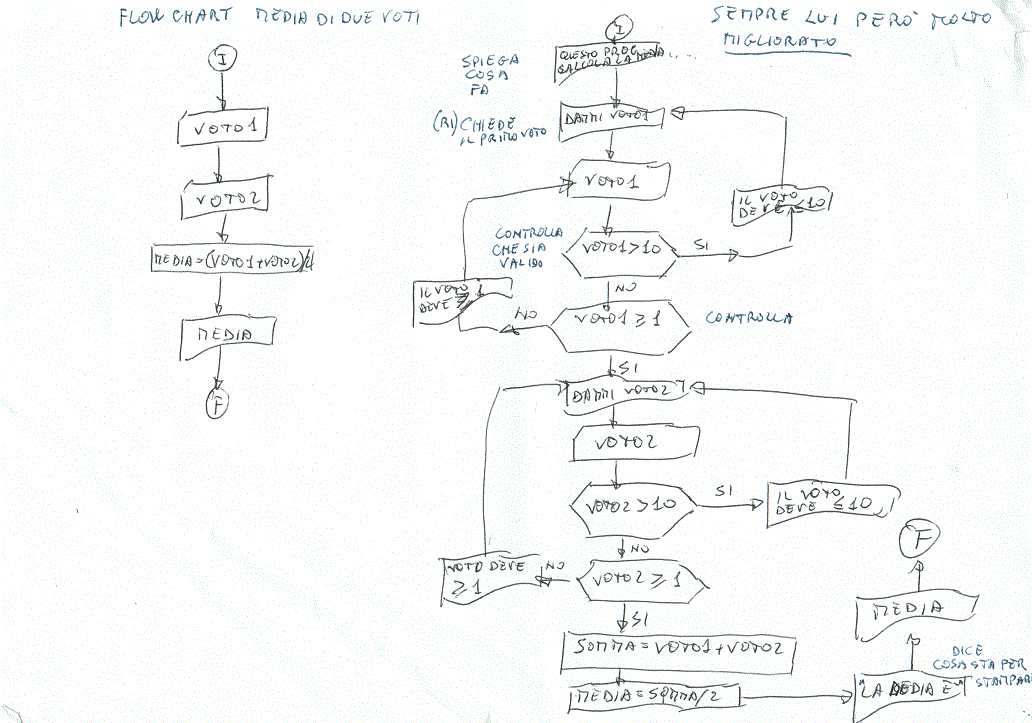 FLOW CHART MEDIA DI DUE VOTI
I
VOTO1
VOTO2
MEDIA=(VOTO1+VOTO2)/
MEDIA
F
SEMPRE LUI PERÒ MOLTO
MIGLIORATO
I
QUESTO PROG.
CALCOLA LA MEDIA....
SPIEGA
COSA
FA
DAMMI VOTO1
(RI)CHIEDE
IL PRIMO VOTO
VOTO1
IL VOTO
DEVE ≤10
CONTROLLA
CHE SIA
VALIDO
VOTO1>10
SI
NO
IL VOTO
DEVE ≥ 1
NO
VOTO1 ≥ 1
CONTROLLA
SI
DAMMI VOTO2
VOTO2
VOTO2 >10
SI
IL VOTO
DEVE ≤ 10
NO
VOTO DEVE
≥ 1
NO
VOTO2 ≥ 1
SI
SOMMA=VOTO1+VOTO2
MEDIA=SOMMA/2
"LA MEDIA E'"
DICE
COSA STA PER
STAMPARE
MEDIA
F